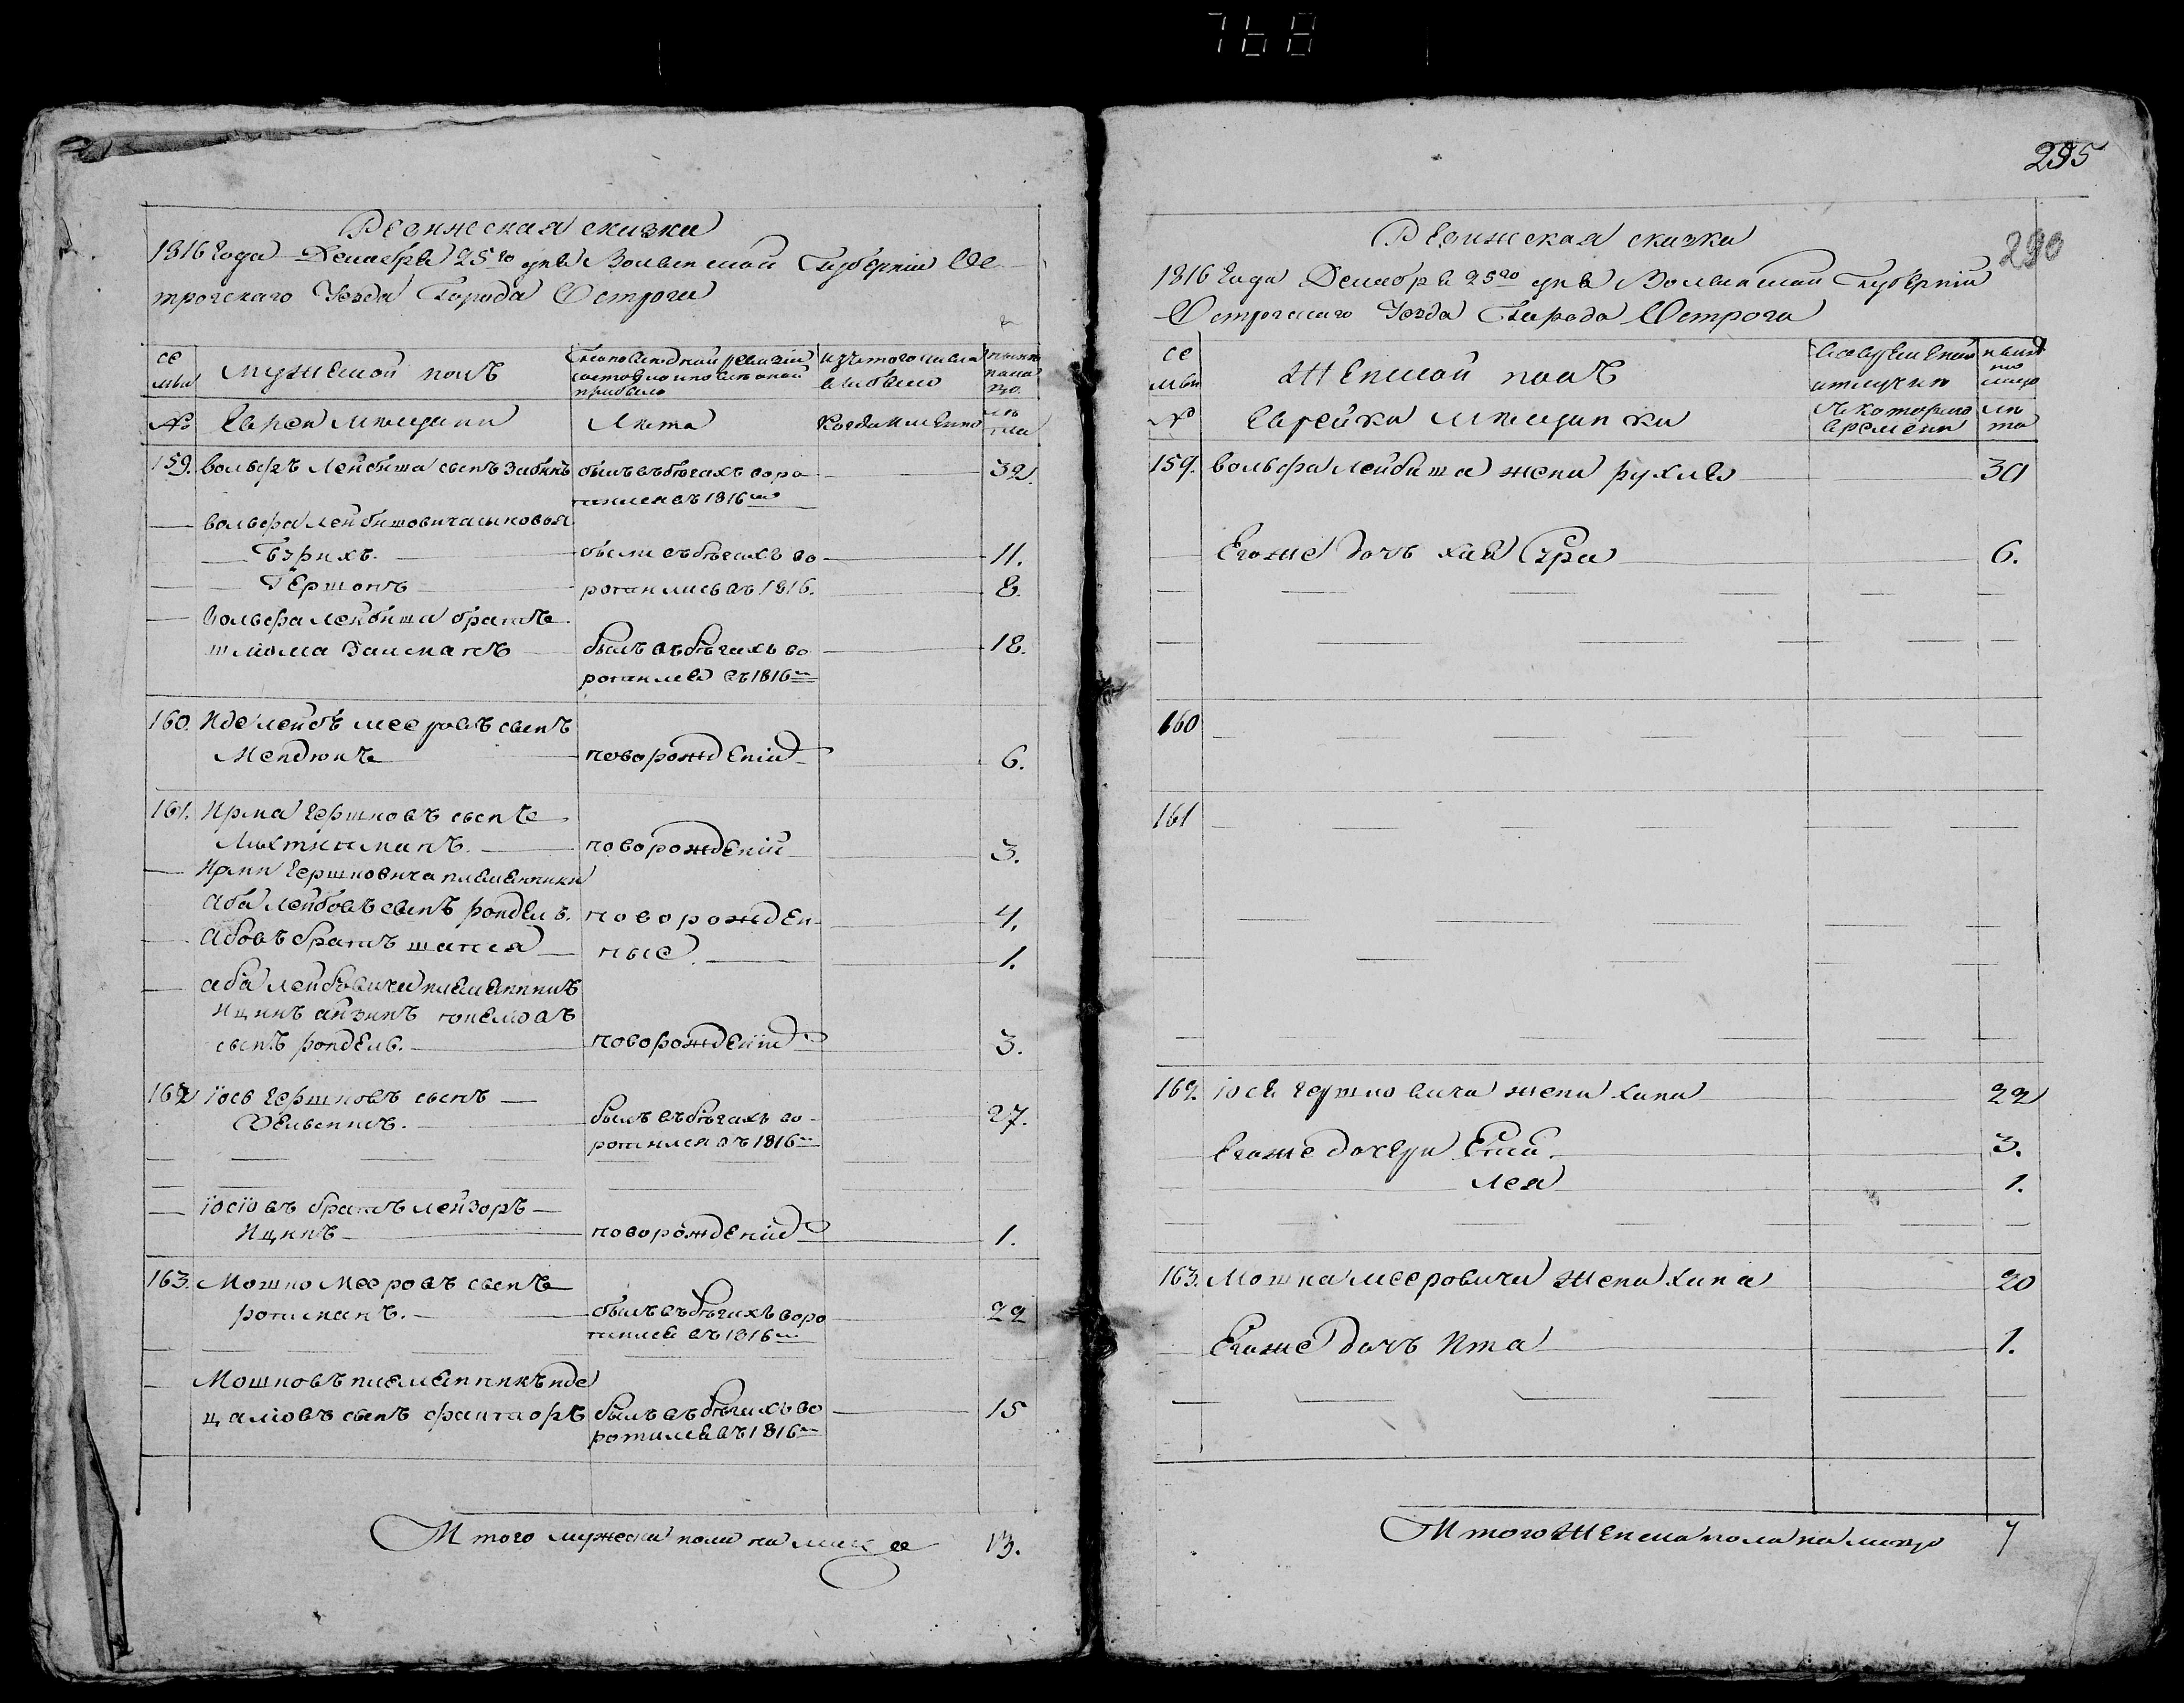 768
Ревижеская сказка
1816 Года Декабря 25го дня Волынской Губернїи Ос
трогскаго Уезда Города Острога
се
мьи
мужеской полъ
по последней ревизїи
состояло и после оной
прибыло
изътого числа
выбыло
ныне
на ли
цо
№
Евреи мещани
Лета
Когда имянно
ле
та
159. Вольфъ Лейбиша сынъ былъ въбегахъ воро 32.
тился въ 1816м
Вольфа Лейбишовича сыновья
Бэрихъ. были въбегахъ во 11.
Гершонъ ротились въ 1816. 8.
Вольфа Лейбиша братъ
шлиома былъ въбегахъ во 18.
ротился въ 1816м
160. Иделейбъ мееровъ сынъ
новорожденїй 6.
161. Гершковъ сынъ
новорожденїй 3.
Гершковича племенники
аба Лейбовъ сынъ рондель. новорожден 4.
абовъ братъ шапся ные. 1.
аба Лейбовича племенникъ
Ицикъ айзикъ
сынъ рондель. новорожденїй 3.
162 іось Гершковъ сынъ
былъ въбегахъ во 27.
ротился въ 1816м
іосїовъ братъ лейзоръ
Ицикъ новорожденїй 1.
163. Мошко Мееровъ сынъ
ротманъ. былъ въбегахъ воро 22
тился въ 1816м
Мошковъ племенникъ иде
сынъ былъ въбегахъ во 15
ротился въ 1816м
Итого мужеска пола на лицо 13.
295
290
Ревижская сказка
1816 Года Декабря 25го дня Волынской Губернїи
Острогскаго Уезда Города Острога
се
мьи
Женской полъ
во временной
отлучке
ныне
на
лицо
№
Еврейки мещанки
съкотораго
времени
ле
та
159. Вольфа Лейбиша жена рухля 30
Егоже дочь хая Сура 6.
160
161
162 іося Гершковича жена хана 22
Егоже дочери 3.
Лея 1.
163. Мошка мееровича жена хана 20
Егоже дочь Ита 1.
Итого Женска пола на лицо 7